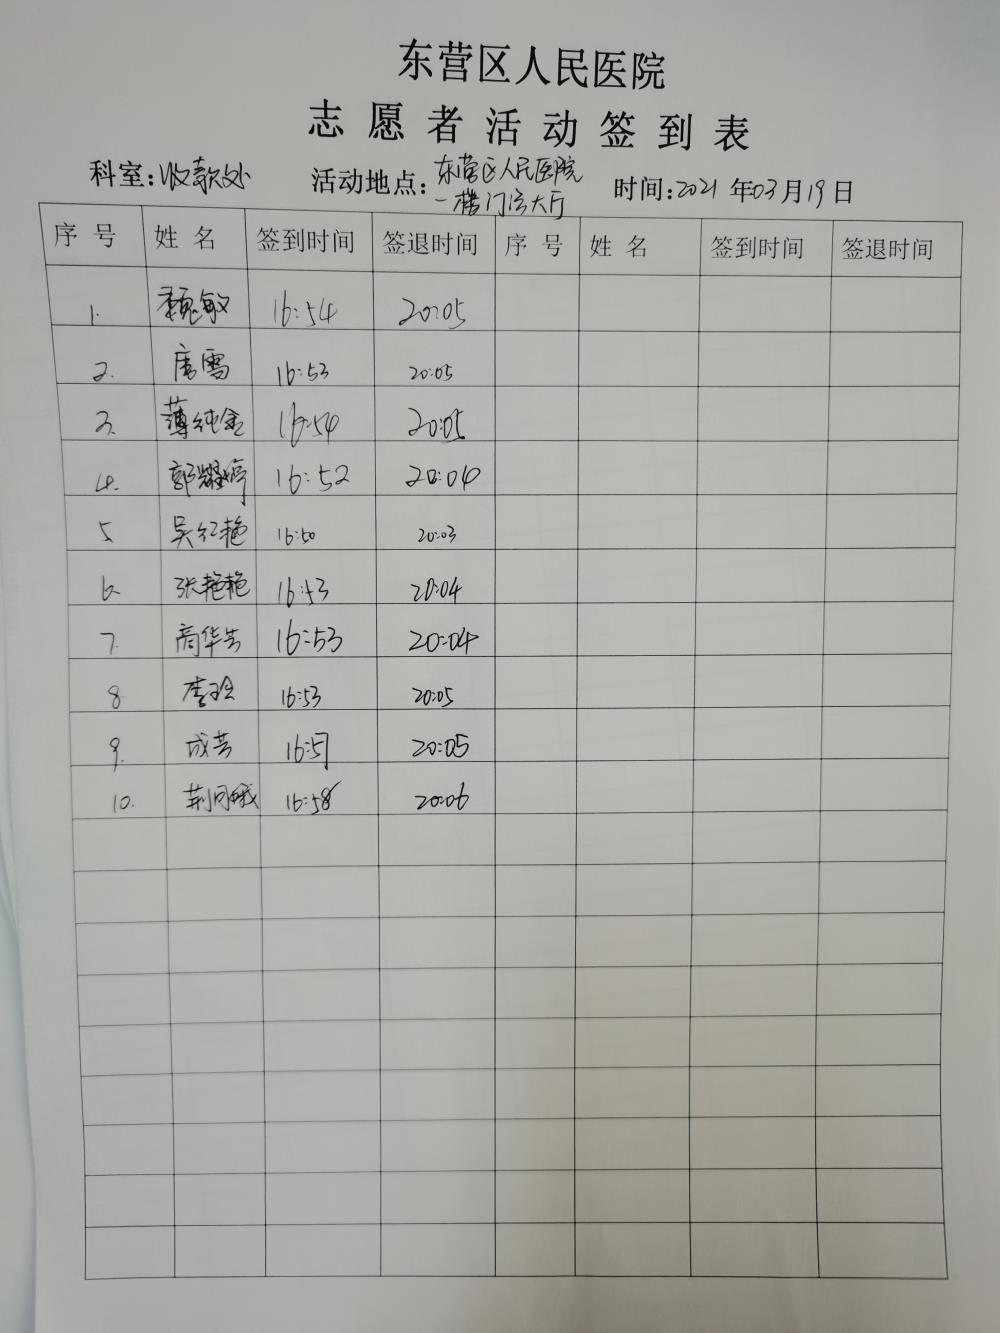 东营区人民医院
志愿者活动签到表
科室:收款处 活动地点:东营区人民医院一楼门诊大厅 时间:2021年03月19日
序号 姓名 签到时间 签退时间 序号 姓名 签到时间 签退时间
1. 魏敏 16:54 20:05
2. 唐雪 16:53 20:05
3. 薄纯金 16:54 20:05
4. 郭耀婷 16:52 20:04
5. 吴红艳 16:50 20:03
6. 张艳艳 16:53 20:04
7. 商华 16:53 20:04
8. 李玲 16:53 20:05
9. 成芸 16:51 20:05
10. 荆 16:58 20:06